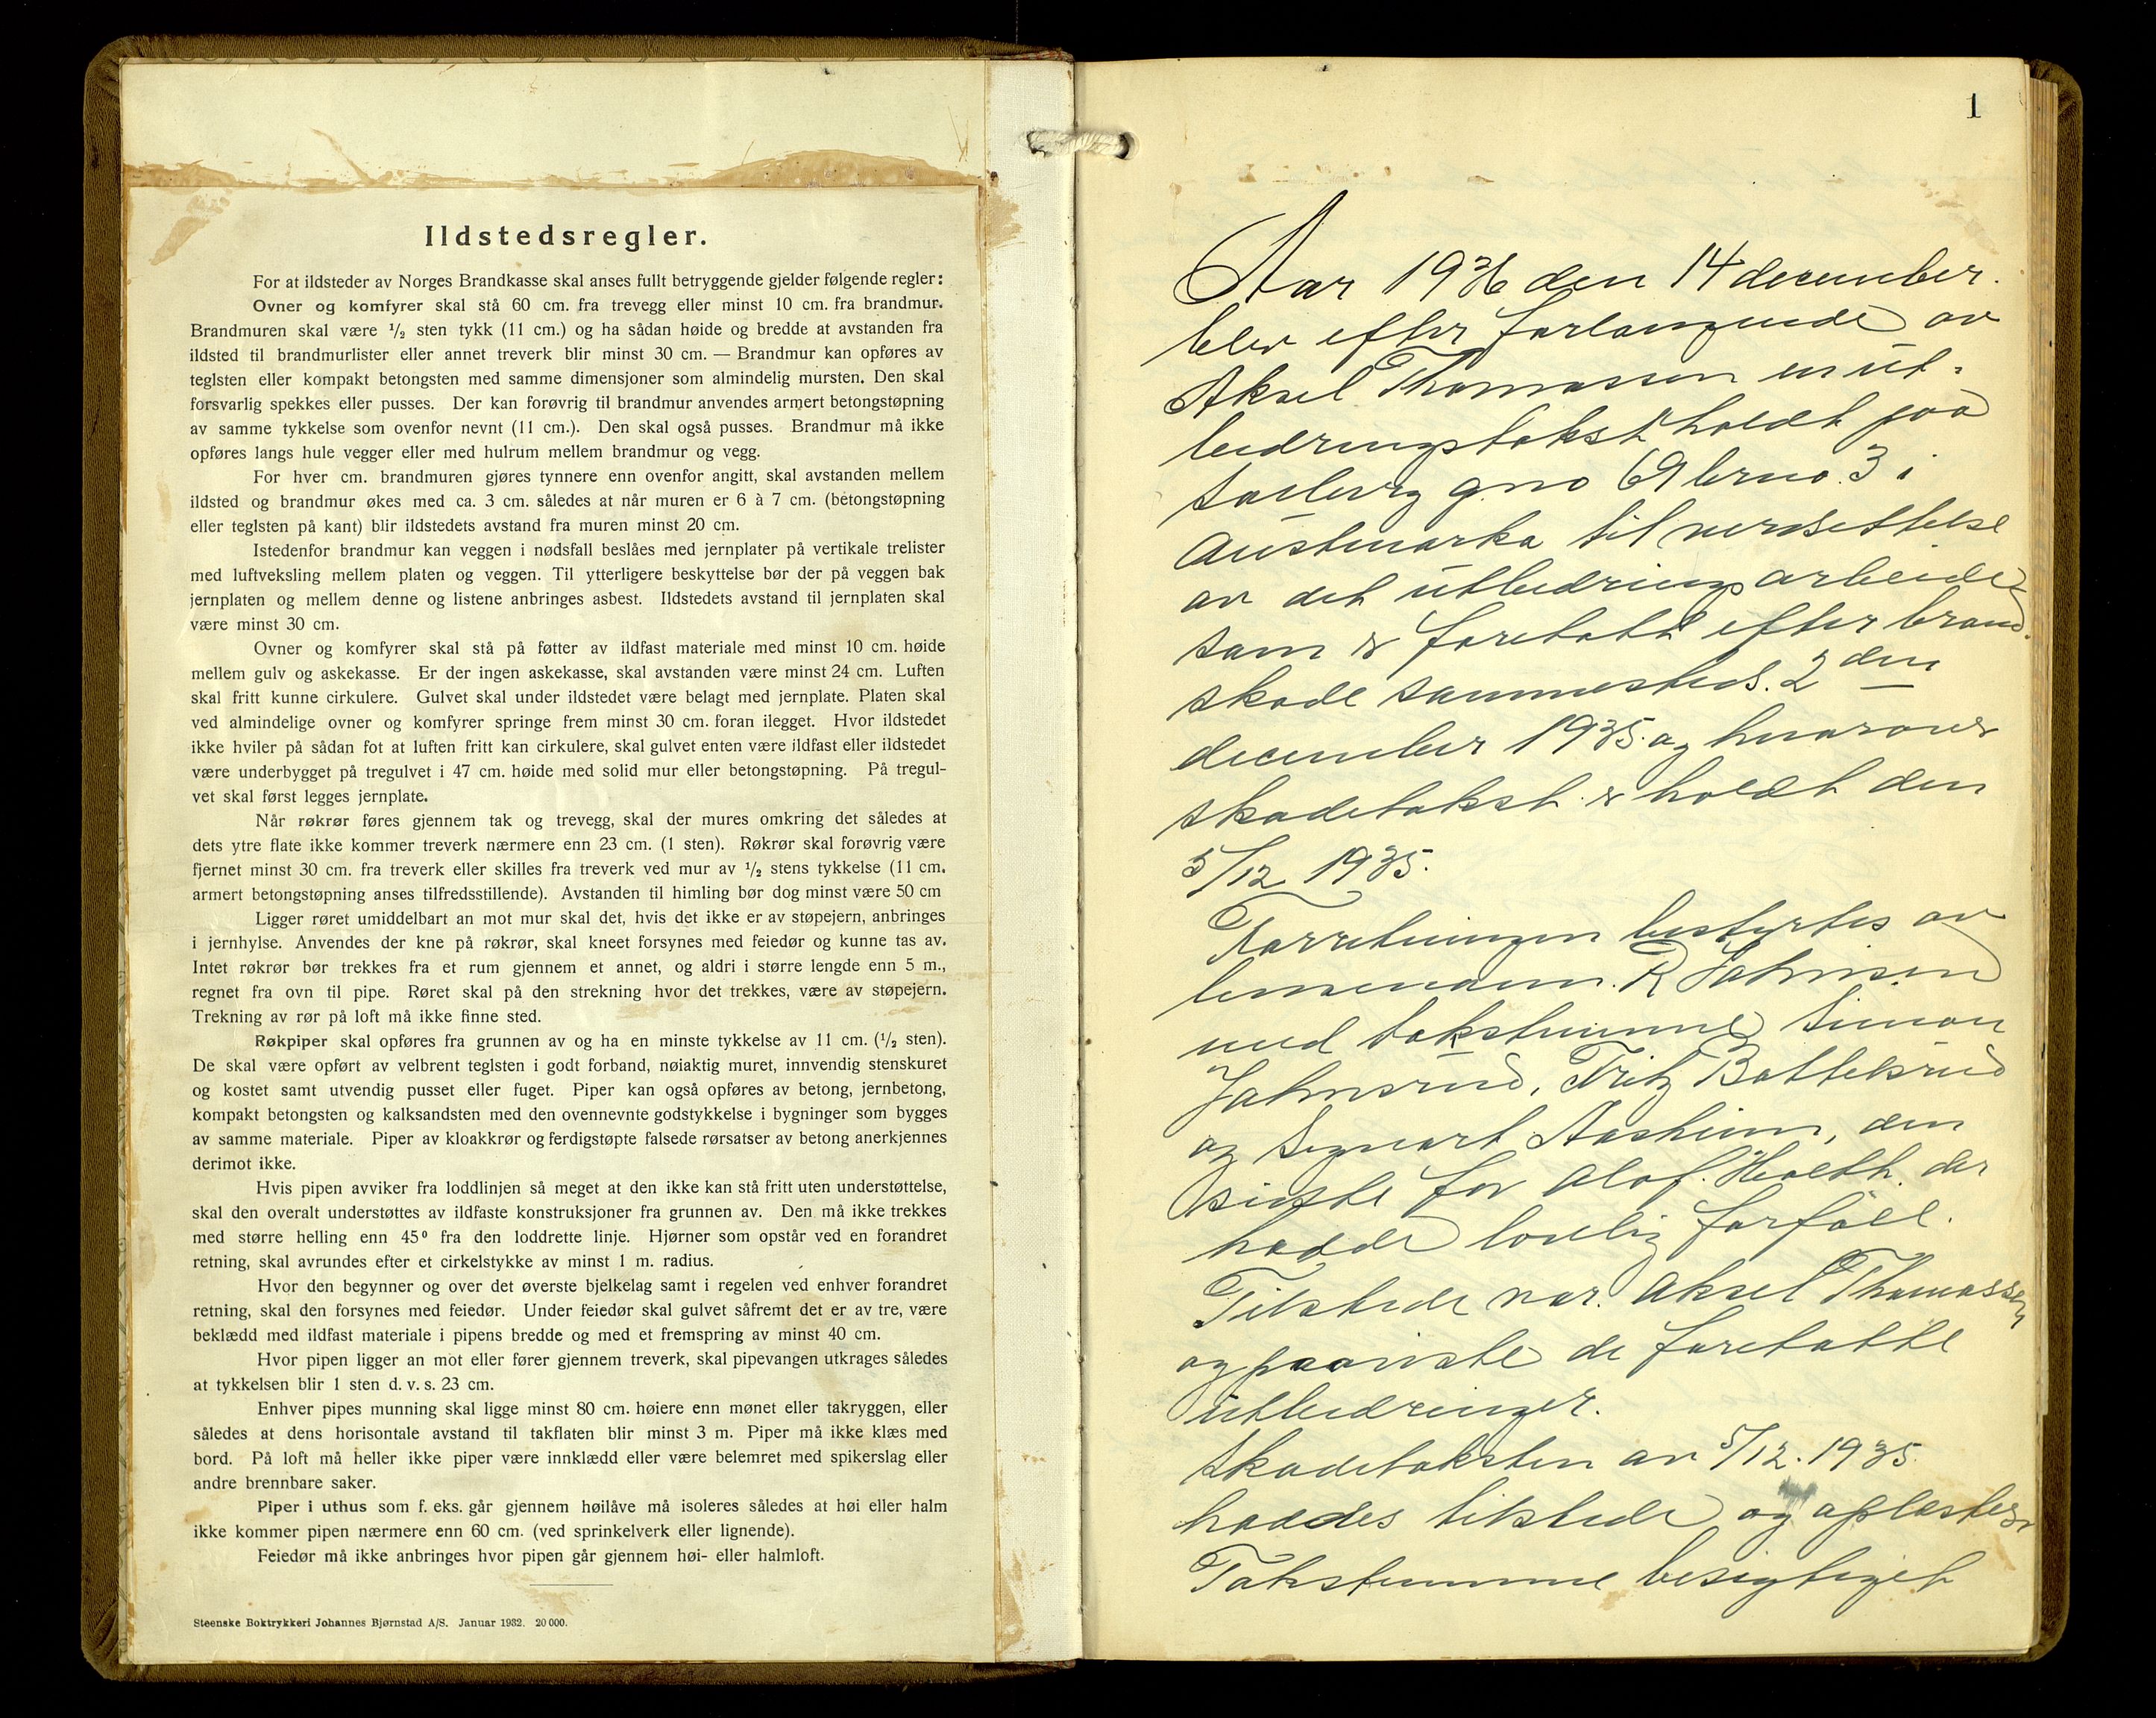 Ildstedsregler.
For at ildsteder av Norges Brandkasse skal anses fullt betryggende gjelder følgende regler:
Ovner og komfyrer skal stå 60 cm. fra trevegg eller minst 10 cm. fra brandmur.
Brandmuren skal være ½ sten tykk (11 cm.) og ha sådan høide og bredde at avstanden fra
ildsted til brandmurlister eller annet treverk blir minst 30 cm. — Brandmur kan opføres av
teglsten eller kompakt betongsten med samme dimensjoner som almindelig mursten. Den skal
forsvarlig spekkes eller pusses. Der kan forøvrig til brandmur anvendes armert betongstøpning
av samme tykkelse som ovenfor nevnt (11 cm.). Den skal også pusses. Brandmur må ikke
opføres langs hule vegger eller med hulrum mellem brandmur og vegg.
For hver cm. brandmuren gjøres tynnere enn ovenfor angitt, skal avstanden mellem
ildsted og brandmur økes med ca. 3 cm. således at når muren er 6 à 7 cm. (betongstøpning
eller teglsten på kant) blir ildstedets avstand fra muren minst 20 cm.
Istedenfor brandmur kan veggen i nødsfall beslåes med jernplater på vertikale trelister
med luftveksling mellem platen og veggen. Til ytterligere beskyttelse bør der på veggen bak
jernplaten og mellem denne og listene anbringes asbest. Ildstedets avstand til jernplaten skal
være minst 30 cm.
Ovner og komfyrer skal stå på føtter av ildfast materiale med minst 10 cm. høide
mellem gulv og askekasse. Er der ingen askekasse, skal avstanden være minst 24 cm. Luften
skal fritt kunne cirkulere. Gulvet skal under ildstedet være belagt med jernplate. Platen skal
ved almindelige ovner og komfyrer springe frem minst 30 cm. foran ilegget. Hvor ildstedet
ikke hviler på sådan fot at luften fritt kan cirkulere, skal gulvet enten være ildfast eller ildstedet
være underbygget på tregulvet i 47 cm. høide med solid mur eller betongstøpning. På tregul-
vet skal først legges jernplate.
Når røkrør føres gjennem tak og trevegg, skal der mures omkring det således at
dets ytre flate ikke kommer treverk nærmere enn 23 cm. (1 sten). Røkrør skal forøvrig være
fjernet minst 30 cm. fra treverk eller skilles fra treverk ved mur av ½ stens tykkelse (11 cm.
armert betongstøpning anses tilfredsstillende). Avstanden til himling bør dog minst være 50 cm
Ligger røret umiddelbart an mot mur skal det, hvis det ikke er av støpejern, anbringes
i jernhylse. Anvendes der kne på røkrør, skal kneet forsynes med feiedør og kunne tas av.
Intet røkrør bør trekkes fra et rum gjennem et annet, og aldri i større lengde enn 5 m.,
regnet fra ovn til pipe. Røret skal på den strekning hvor det trekkes, være av støpejern.
Trekning av rør på loft må ikke finne sted.
Røkpiper skal opføres fra grunnen av og ha en minste tykkelse av 11 cm. (½ sten).
De skal være opført av velbrent teglsten i godt forband, nøiaktig muret, innvendig stenskuret
og kostet samt utvendig pusset eller fuget. Piper kan også opføres av betong, jernbetong,
kompakt betongsten og kalksandsten med den ovennevnte godstykkelse i bygninger som bygges
av samme materiale. Piper av kloakkrør og ferdigstøpte falsede rørsatser av betong anerkjennes
derimot ikke.
Hvis pipen avviker fra loddlinjen så meget at den ikke kan stå fritt uten understøttelse,
skal den overalt understøttes av ildfaste konstruksjoner fra grunnen av. Den må ikke trekkes
med større helling enn 45° fra den loddrette linje. Hjørner som opstår ved en forandret
retning, skal avrundes efter et cirkelstykke av minst 1 m. radius.
Hvor den begynner og over det øverste bjelkelag samt i regelen ved enhver forandret
retning, skal den forsynes med feiedør. Under feiedør skal gulvet såfremt det er av tre, være
beklædd med ildfast materiale i pipens bredde og med et fremspring av minst 40 cm.
Hvor pipen ligger an mot eller fører gjennem treverk, skal pipevangen utkrages således
at tykkelsen blir 1 sten d. v. s. 23 cm.
Enhver pipes munning skal ligge minst 80 cm. høiere enn mønet eller takryggen, eller
således at dens horisontale avstand til takflaten blir minst 3 m. Piper må ikke klæs med
bord. På loft må heller ikke piper være innklædd eller være belemret med spikerslag eller
andre brennbare saker.
Piper i uthus som f. eks. går gjennem høilåve må isoleres således at høi eller halm
ikke kommer pipen nærmere enn 60 cm. (ved sprinkelverk eller lignende).
Feiedør må ikke anbringes hvor pipen går gjennem høi- eller halmloft.
Steenske Boktrykkeri Johannes Bjørnstad A/S. Januar 1932. 20 000.
1
Aar 1936 den 14 december.
blev efter forlangende av
Aksel Thomassen en ut-
bedringstakst holdt paa
Solberg g.no 69 brno. 3 i
Austmarka til verdsettelse
av det utbedringsarbeide
som er foretatt efter brand-
skade sammesteds. 2 den
december 1935. og hvorover
skadetakst er holdt den
5/12 1935.
Forretningen bestyrtes av
lensmann. R Johnsen
med takstmenne Simon
Johnsrud, Fritz Bottelsrud
og Sigvart Aasheim, den
sidste for Olof. Holth. der
hadde lovlig forfall.
Tilstede var. Aksel Thomassen
og paaviste de foretatte
utbedringer.
Skadetaksten av 5/12. 1935.
haddes tilstede og oplæstes.
Takstmenne besigtiget